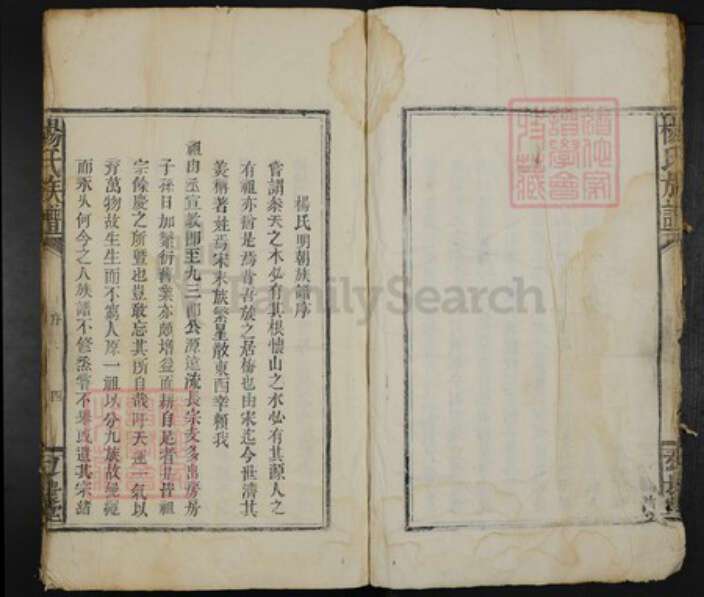 楊氏明朝族譜序
嘗謂參天之木必有其根懷山之水必有其源人之
有祖亦猶是焉昔吾族之居梅也由宋迄今世濟其
美稱著姓焉宋末族繁星散東西幸賴我
祖由丞宣教郎至九三郎公源遠流長宗支多出房房
子孫日加繁衍舊業亦頗增益而耕自足者非皆祖
宗餘慶之所暨也豈敢忘其所自哉天運一氣以
育萬物故生生而不窮人原一祖以分九族故綿綿
而永久何今之人族譜不修烝嘗不舉或遺其宗緒
楊氏族譜
序
四
楊氏族譜
FamilySearch
譜學會